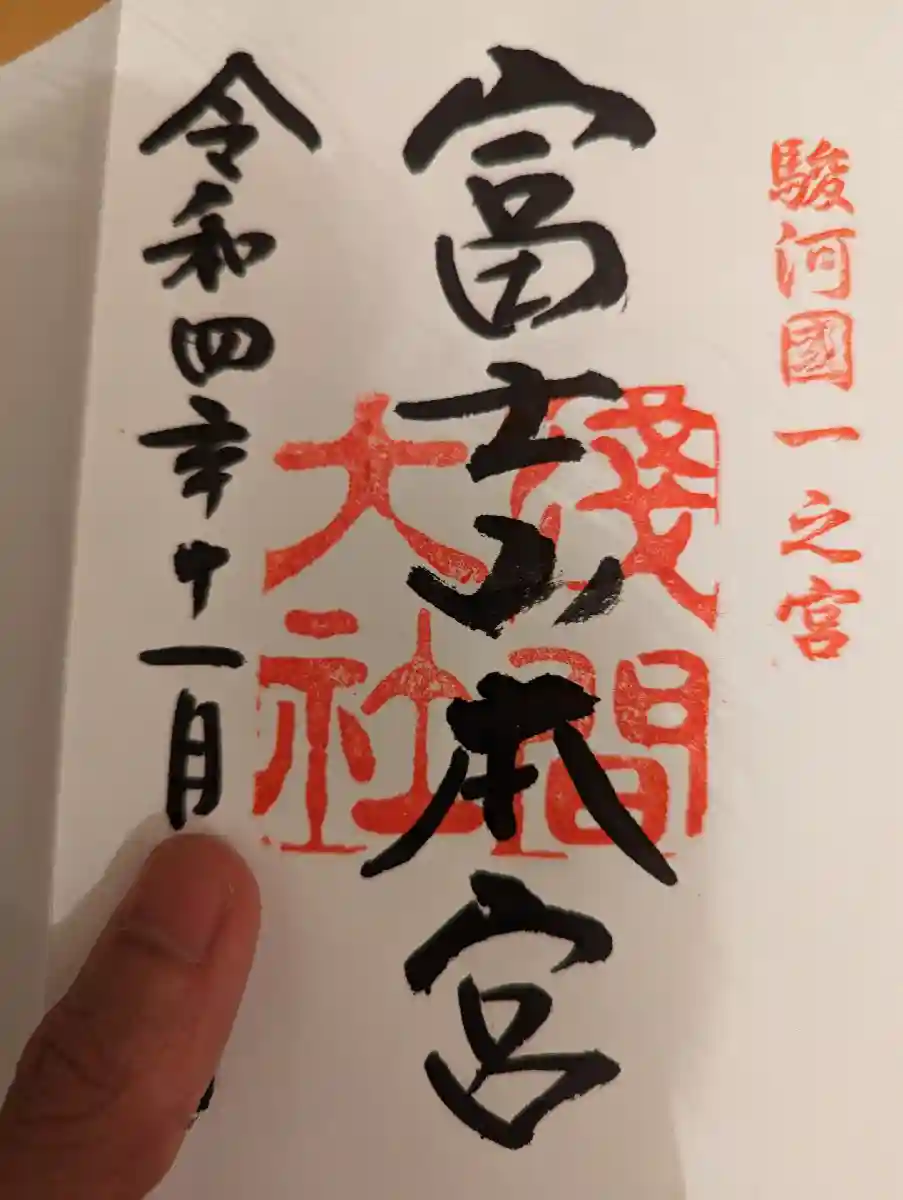 駿河國一之宮
富士山本宮
淺間大社
令和四年十一月